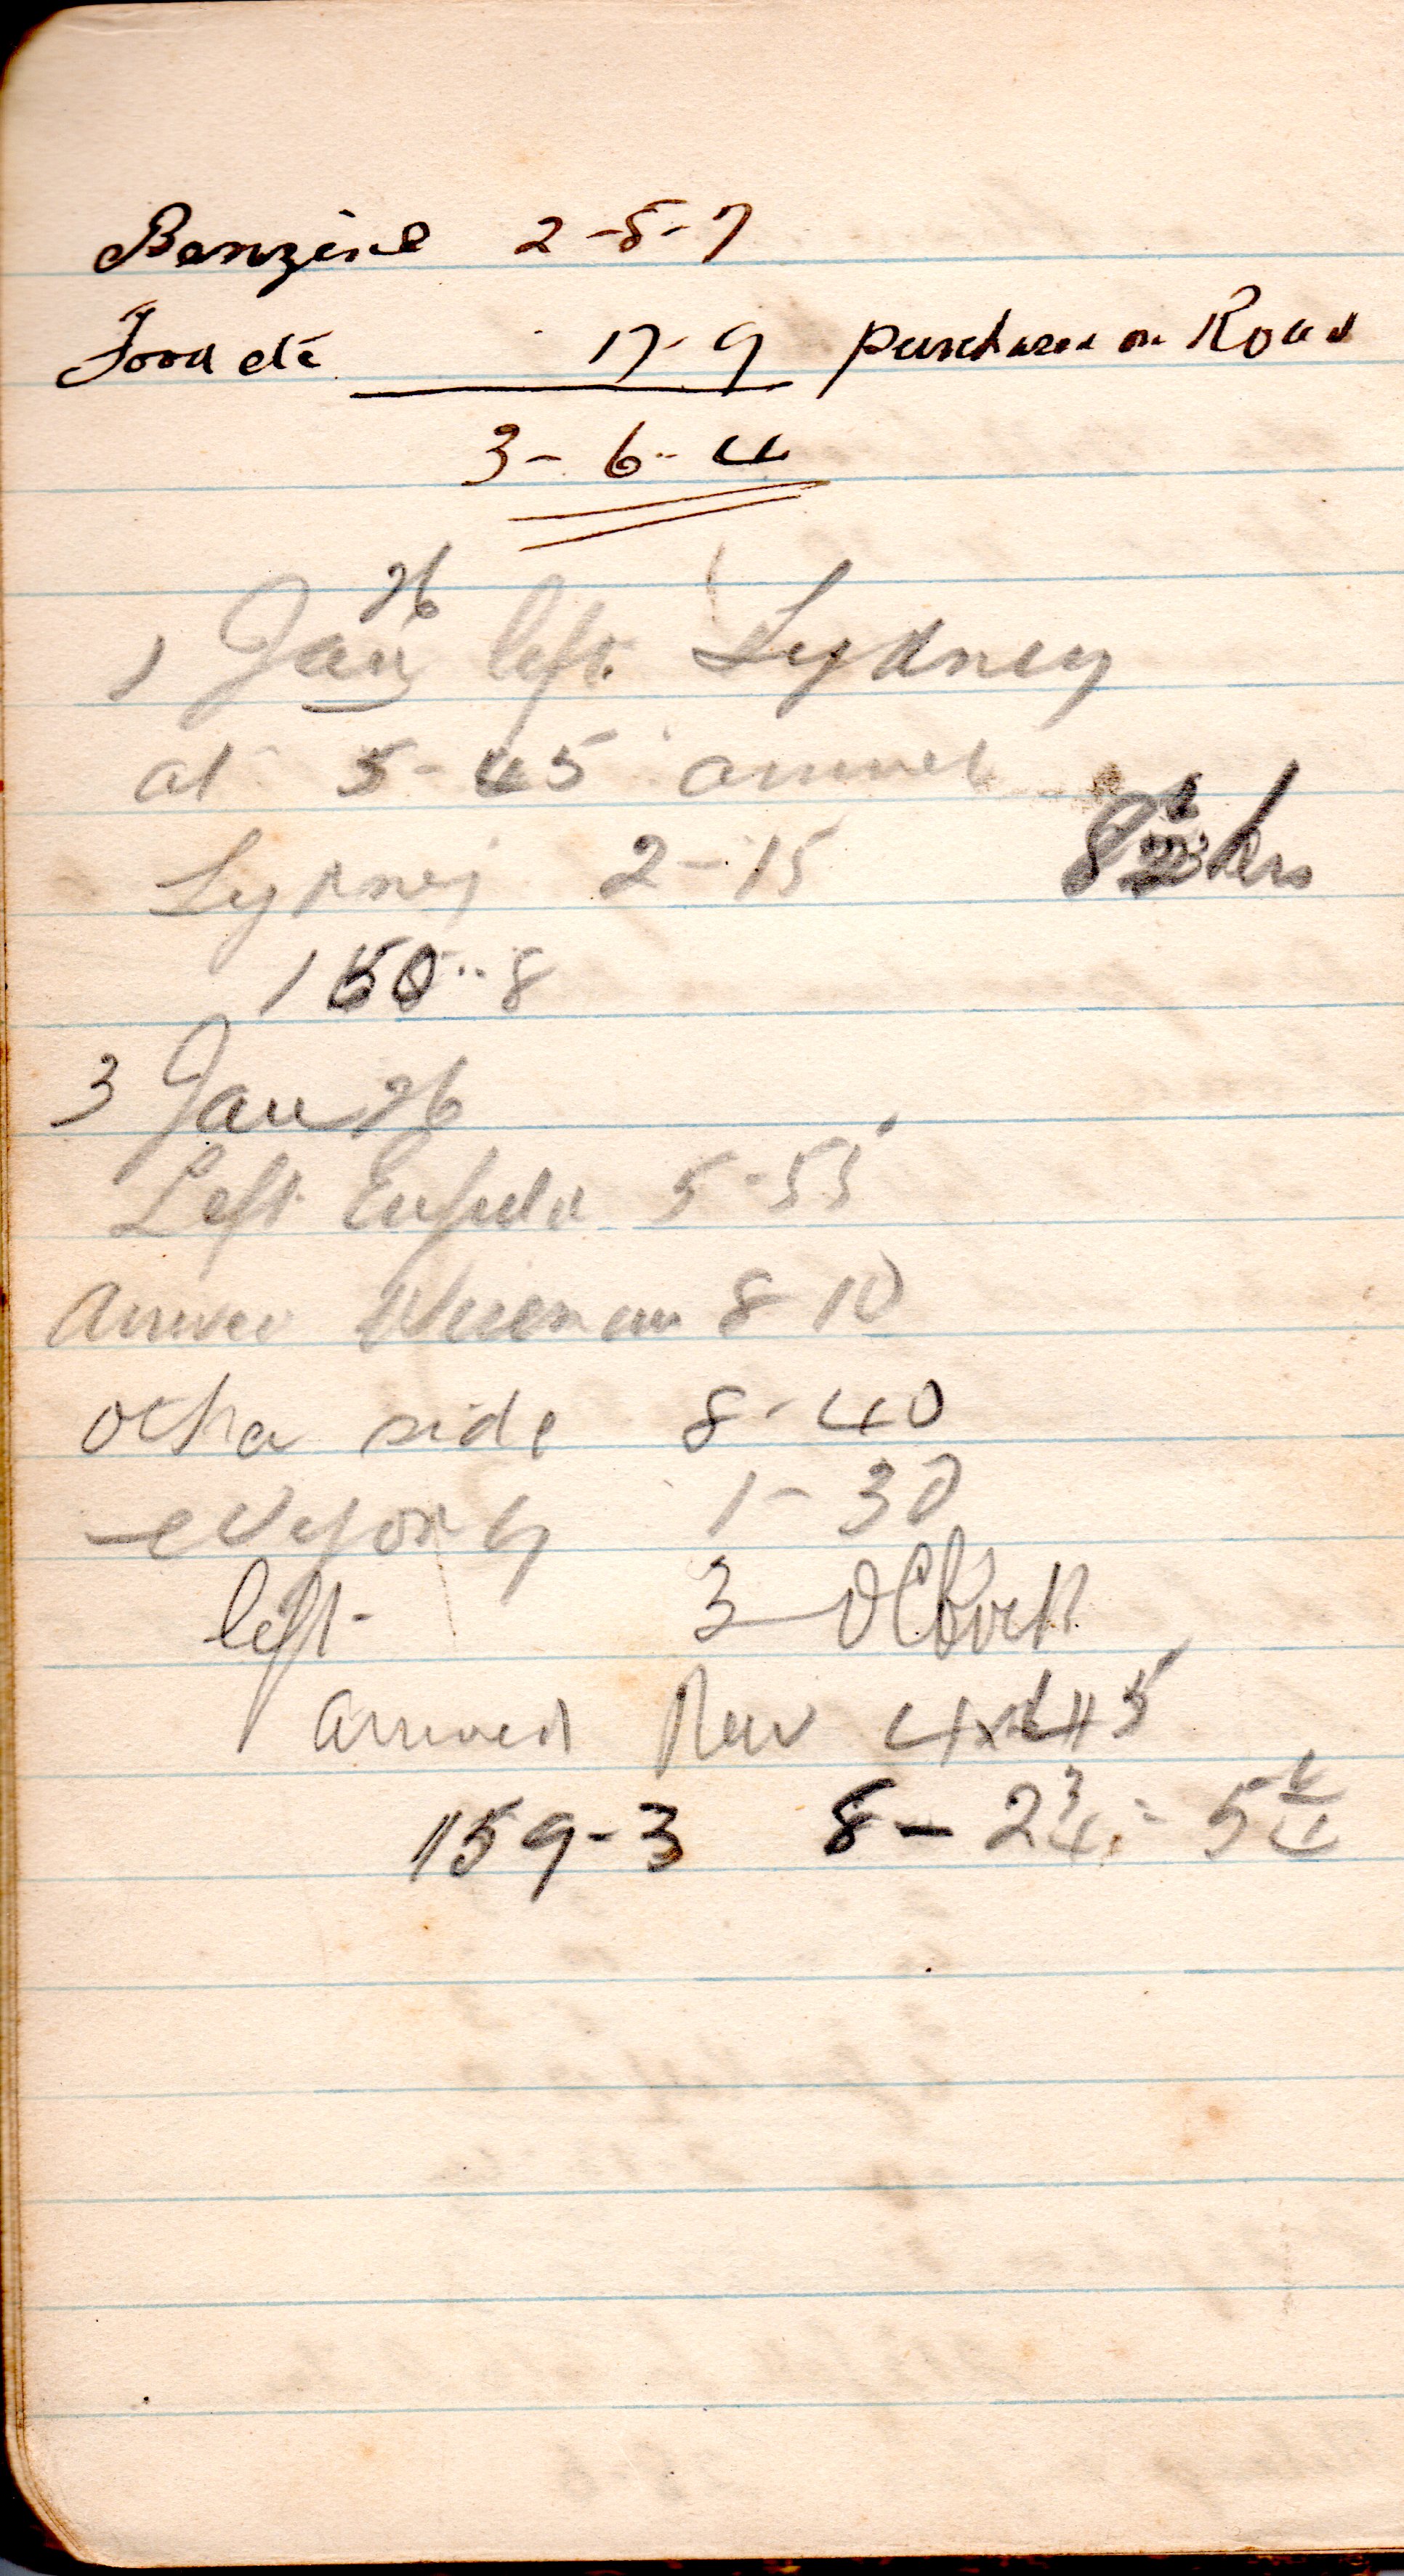 Benzine 2-8-7
Food etc 17-9 purchased on Road
3-6-4
26
1 Jany left Sydney
at 5-45 arrived
Sydney 2-15 8½ hrs
150-8
3 Jan 26
Left Enfield 5-55
arrived Wiseman 8 10
other side 8-40
Wyong 1-30
left 3 OClock
arrived New 4 45
159-3 8-2¾=5¼